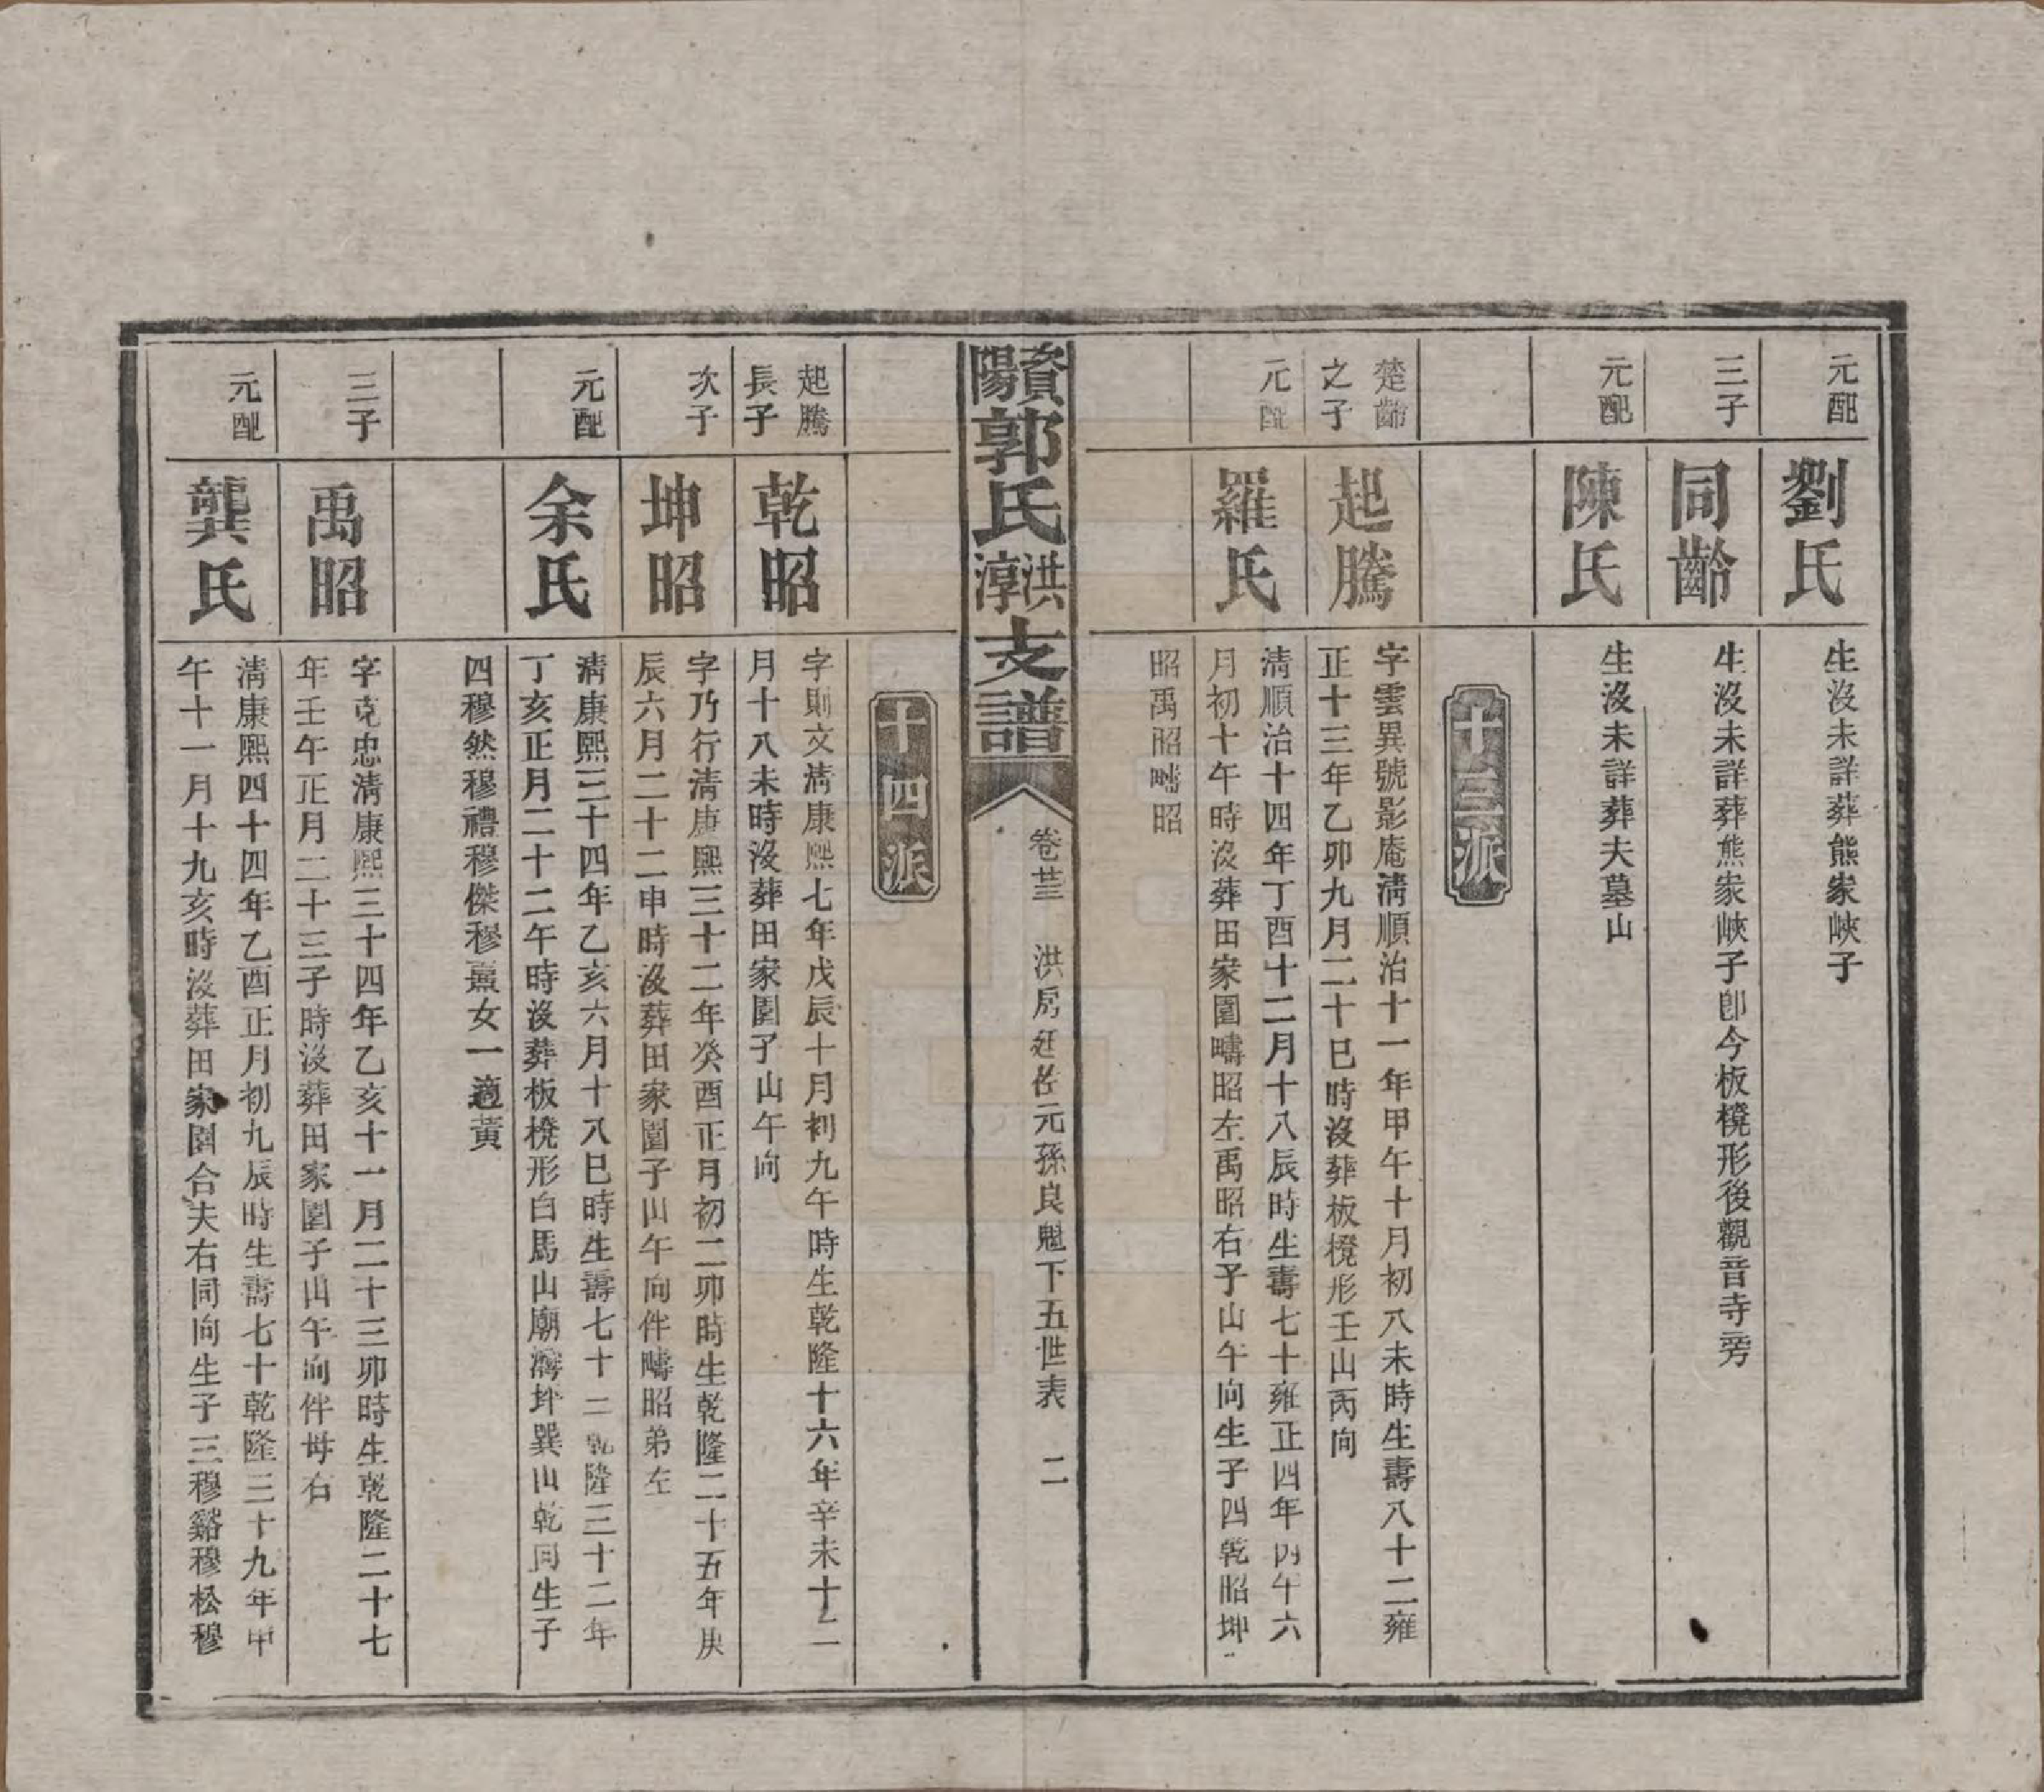 元配
劉氏
生沒未詳葬熊家峽子
三子
同齡
生沒未詳葬熊家峽子卽今板櫈形後觀音寺旁
元配
陳氏
生沒未詳葬夫墓山
十三派
楚齡
之子
起騰
字雲異號影庵淸順治十一年甲午十月初八未時生壽八十二雍
正十三年乙卯九月二十巳時沒葬板櫈形壬山丙向
元配
羅氏
淸順治十四年丁酉十二月十八辰時生壽七十雍正四年丙午六
月初十午時沒葬田家園疇昭左禹昭右子山午向生子四乾昭坤
昭禹昭疇昭
資陽郭氏洪淳支譜
卷廿三
洪房廷佐元孫良魁下五世表
二
十四派
起騰
長子
乾昭
字則文淸康熙七年戊辰十月初九午時生乾隆十六年辛未十二
月十八未時沒葬田家園子山午向
次子
坤昭
字乃行淸康熙三十二年癸酉正月初二卯時生乾隆二十五年庚
辰六月二十二申時沒葬田家園子山午向伴疇昭弟左
元配
余氏
淸康熙三十四年乙亥六月十八巳時生壽七十三乾隆三十二年
丁亥正月二十二午時沒葬板櫈形白馬山廟灣坪巽山乾向生子
四穆然穆禮穆傑穆薰女一適黃
三子
禹昭
字克忠淸康熙三十四年乙亥十一月二十三卯時生乾隆二十七
年壬午正月二十三子時沒葬田家園子山午向伴母右
元配
龔氏
淸康熙四十四年乙酉正月初九辰時生壽七十乾隆三十九年甲
午十一月十九亥時沒葬田家園合夫右同向生子三穆谿穆松穆